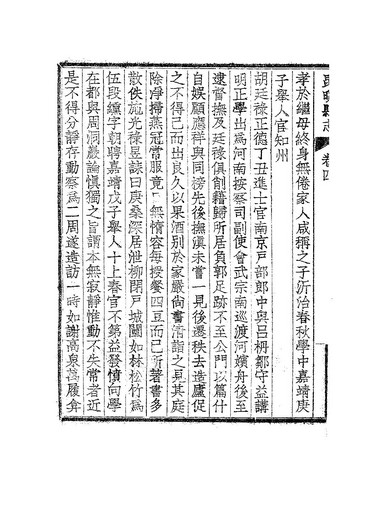 東明縣志 卷四
孝於繼母終身無倦家人咸稱之子沂治春秋學中嘉靖庚
子舉人官知州
胡廷祿正德丁丑進士官南京戶部郎中與呂柟鄒守益講
明正學出為河南按察司副使會武宗南巡渡河嬪舟後至
逮督撫及廷祿俱削籍歸所居負郭足跡不至公門以篇什
自娛顧應祥與同滂先後撫滇未嘗一見後遷秩去造廬促
之不得已而出良久以果酒別於家嚴尚書清詣之見其庭
除淨掃燕冠常服竟 無惰容每授餐四豆而已所著書多
散佚施光祿昱誄曰庚桑深居泄柳閉戶城闕如林松竹為
伍段續字朝聘嘉靖戊子舉人十上春官不第益發憤向學
在都與周洞巖論慎獨之旨謂本無寂靜惟動不失常者近
是不得分靜存動察為二周遂造訪一時如謝高泉萬履菴